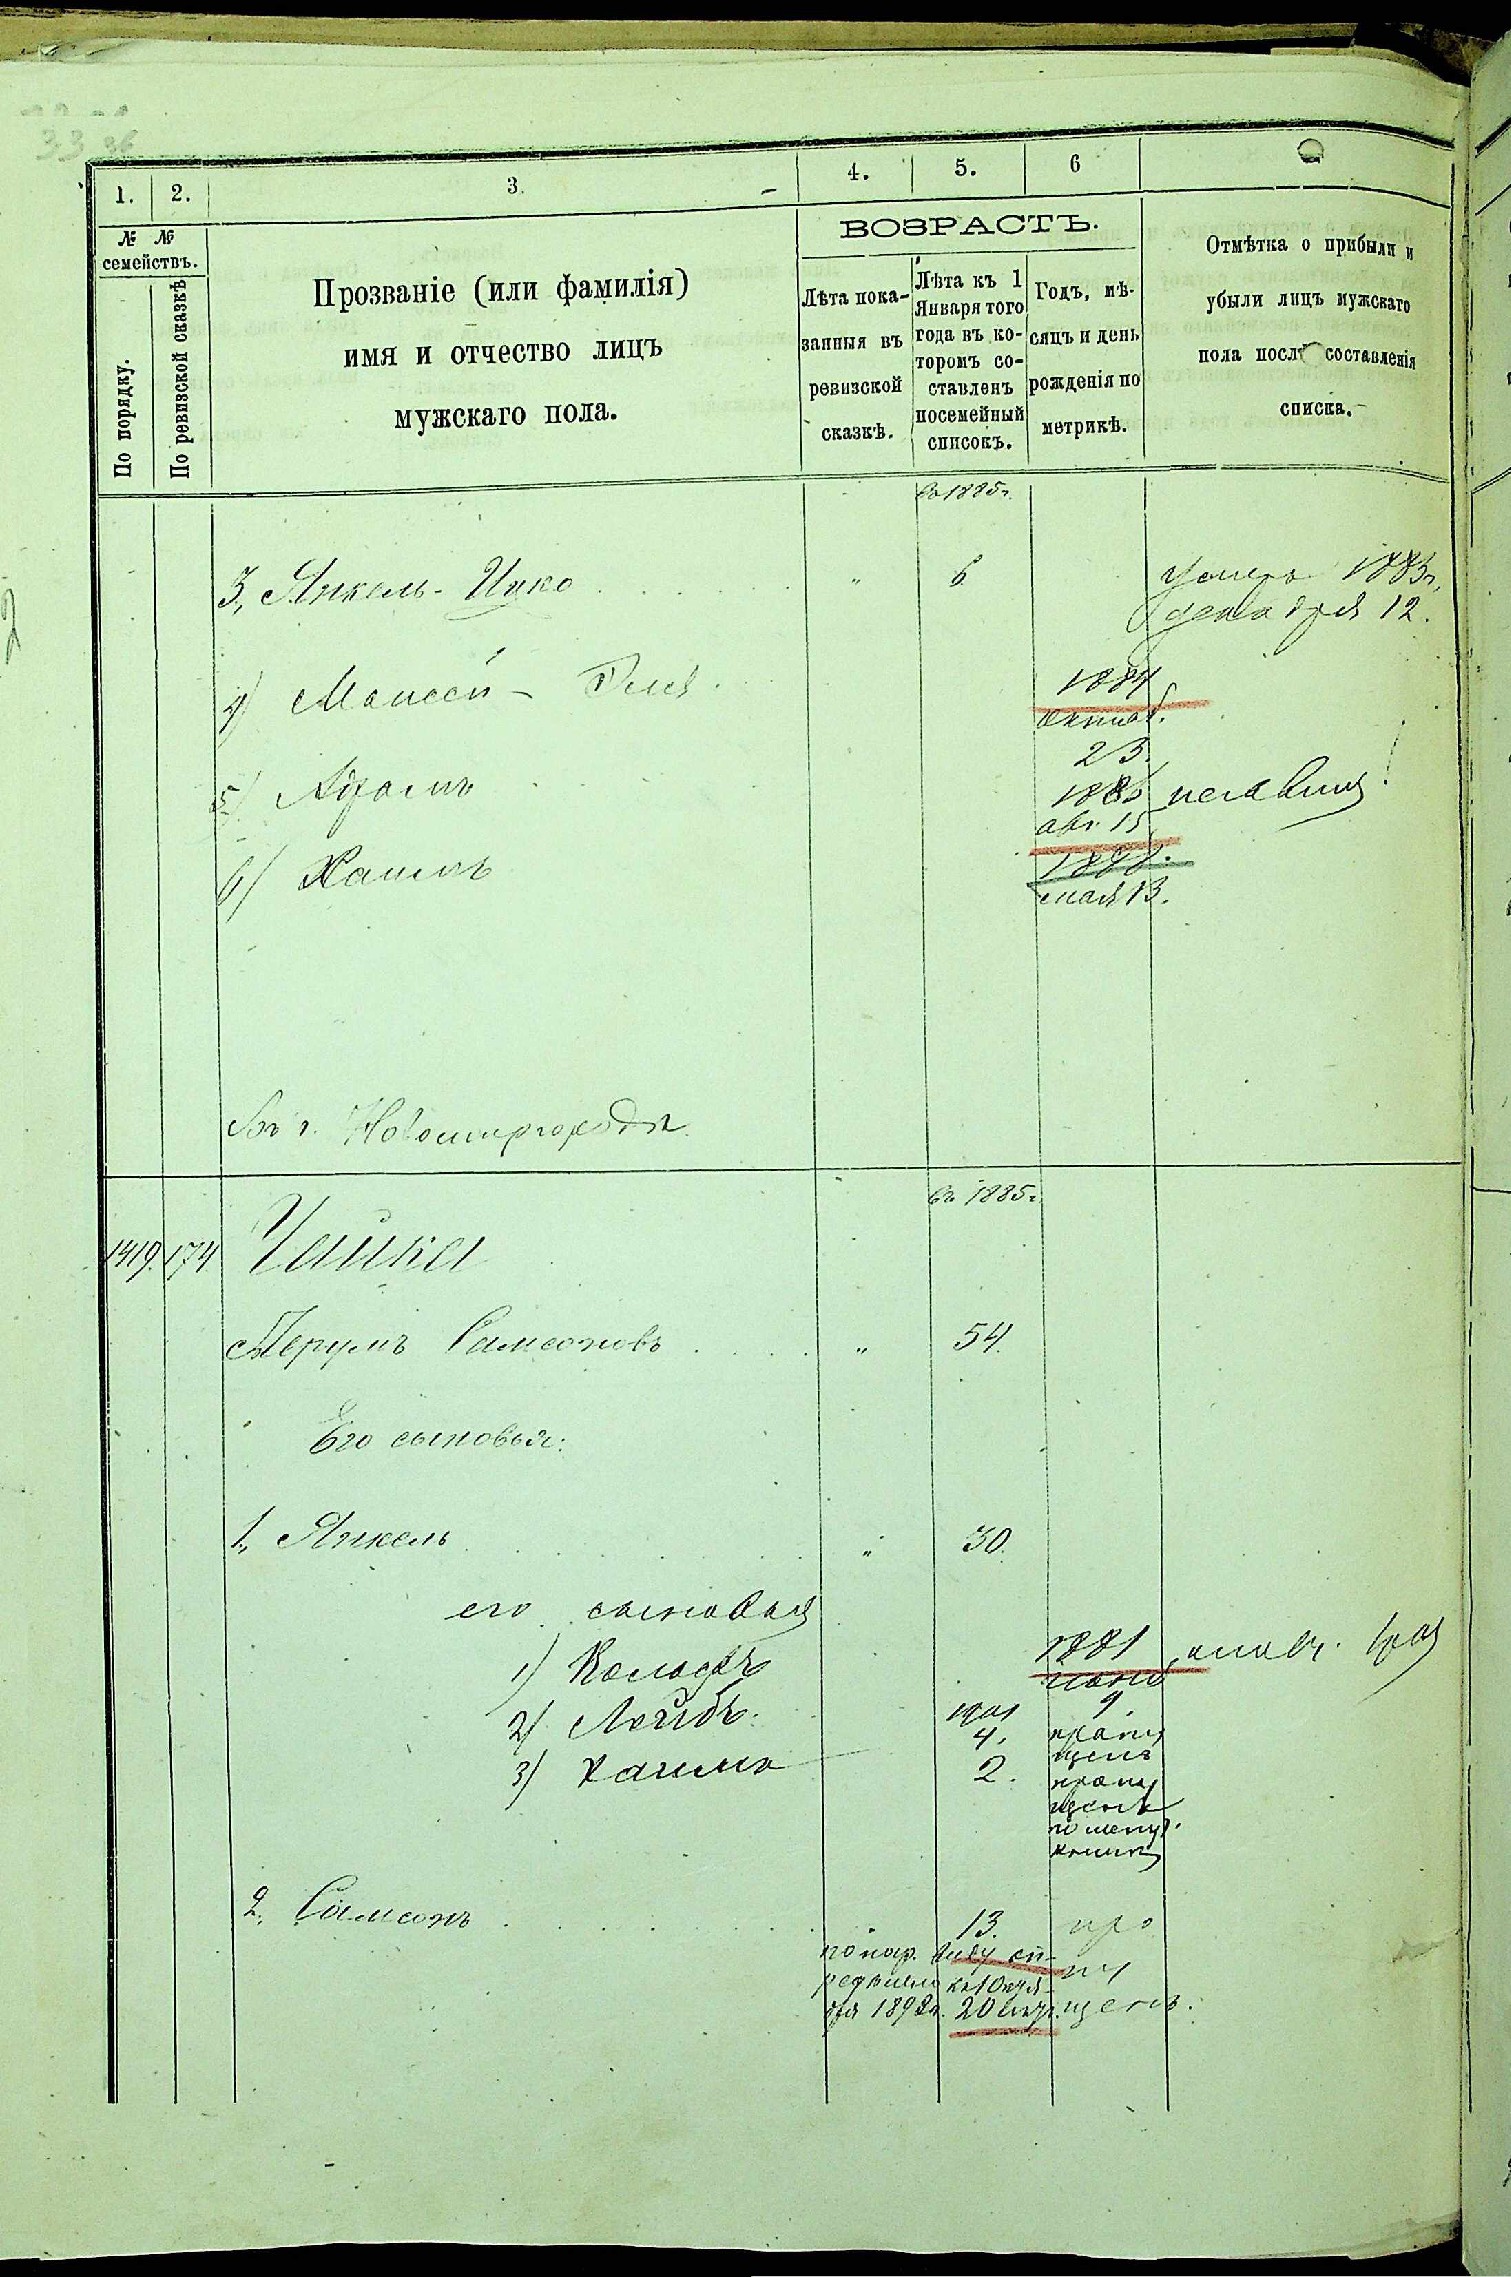 33
1. 2. 3. 4. 5. 6
№ № семействъ.
По порядку.
По ревизской сказкѣ
Прозваніе (или фамилія)
имя и отчество лицъ
мужскаго пола.
ВОЗРАСТЪ.
Лѣта пока-
занныя въ
ревизской
сказкѣ.
Лѣта къ 1
Января того
года въ ко-
торомъ со-
ставленъ
посемейный
списокъ.
Годъ, мѣ-
сяцъ и день
рожденія по
метрикѣ.
Отмѣтка о прибыли и
убыли лицъ мужскаго
пола послѣ составленія
списка.
въ 1885г.
3, Янкель-Ицко " 6 умеръ 1883г.
декабря 12.
4) Моисей- 1884
октяб.
23.
5) Абрамъ 1886
авг. 15
6) Хаимъ
мая 13.
Въ г. Новомиргородѣ
въ 1885г.
1419. 174 Чайка
Берумъ Самсоновъ " 54.
Его сыновья:
1, Янкель " 30.
его сыновья
1) 1881
9.
2) Лейбъ 4. пропу
щенъ
3) Хаимъ 2. пропу
щенъ
2, Самсонъ " 13. про
по нар. виду оп- пу
редѣленъ къ 1 Октя-
бря 1892г. 20 лѣтъ. щенъ.